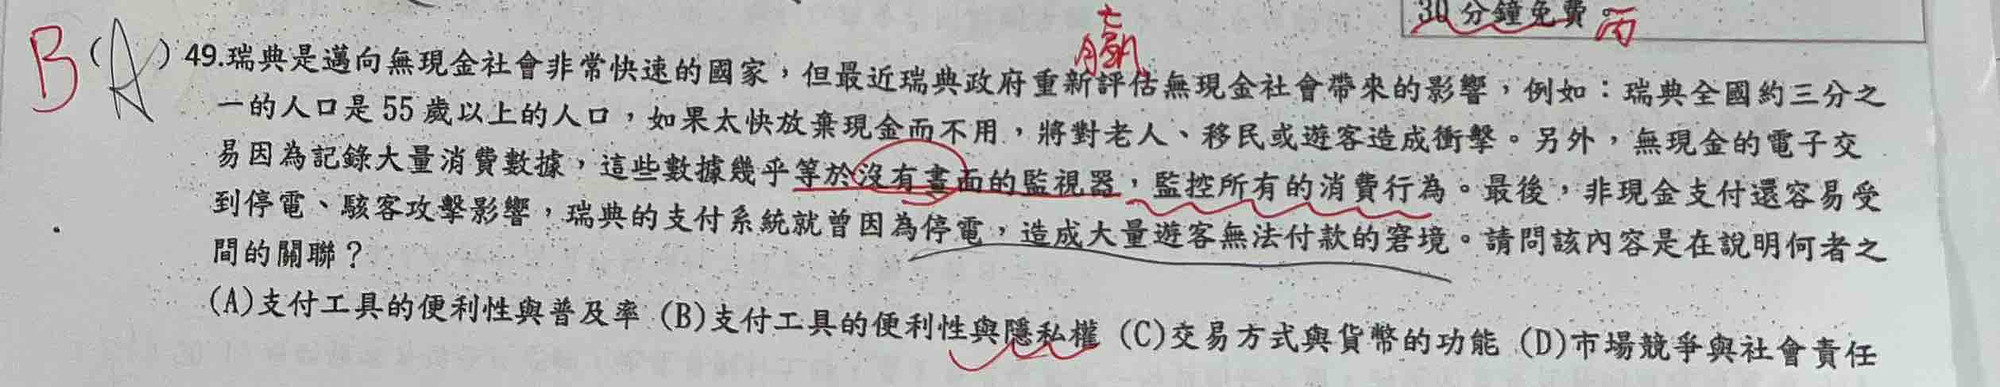 30分鐘免費。丙
贏
B(A)49.瑞典是邁向無現金社會非常快速的國家，但最近瑞典政府重新評估無現金社會帶來的影響，例如：瑞典全國約三分之
一的人口是55歲以上的人口，如果太快放棄現金而不用，將對老人、移民或遊客造成衝擊。另外，無現金的電子交
易因為記錄大量消費數據，這些數據幾乎等於沒有畫面的監視器，監控所有的消費行為。最後，非現金支付還容易受
到停電、駭客攻擊影響，瑞典的支付系統就曾因為停電，造成大量遊客無法付款的窘境。請問該內容是在說明何者之
間的關聯？
(A)支付工具的便利性與普及率 (B)支付工具的便利性與隱私權 (C)交易方式與貨幣的功能 (D)市場競爭與社會責任